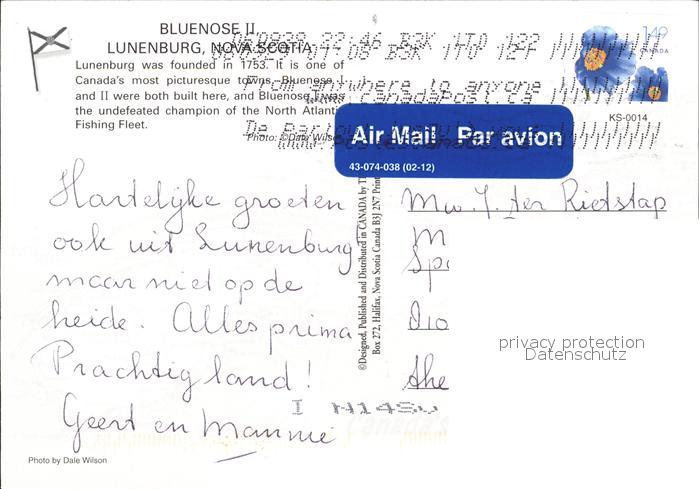 BLUENOSE II
LUNENBURG, NOVA SCOTIA
Lunenburg was founded in 1753. It is one of
Canada's most picturesque towns. Bluenose I
and II were both built here, and Bluenose I was
the undefeated champion of the North Atlantic
Fishing Fleet.
Photo: ©Dale Wilson
22:46 B3K 1T0 122
From anywhere to anyone
canadapost.ca
149
CANADA
KS-0014
Air Mail Par avion
43-074-038 (02-12)
Hartelijke groeten
ook uit Lunenburg
maar niet op de
heide. Alles prima
Prachtig land!
Geert en Mannie
©Designed, Published and Distributed in CANADA by
Box 272, Halifax, Nova Scotia Canada B3J 2N7
Mw. J. ter Rietstap
privacy protection
Datenschutz
Photo by Dale Wilson